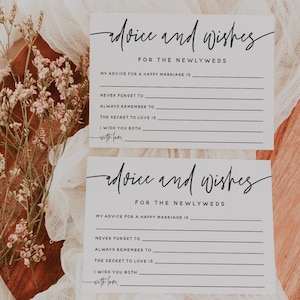 advice and wishes
FOR THE NEWLYWEDS
MY ADVICE FOR A HAPPY MARRIAGE IS
NEVER FORGET TO
ALWAYS REMEMBER TO
THE SECRET TO LOVE IS
I WISH YOU BOTH
with love,
advice and wishes
FOR THE NEWLYWEDS
MY ADVICE FOR A HAPPY MARRIAGE IS
NEVER FORGET TO
ALWAYS REMEMBER TO
THE SECRET TO LOVE IS
I WISH YOU BOTH
with love,